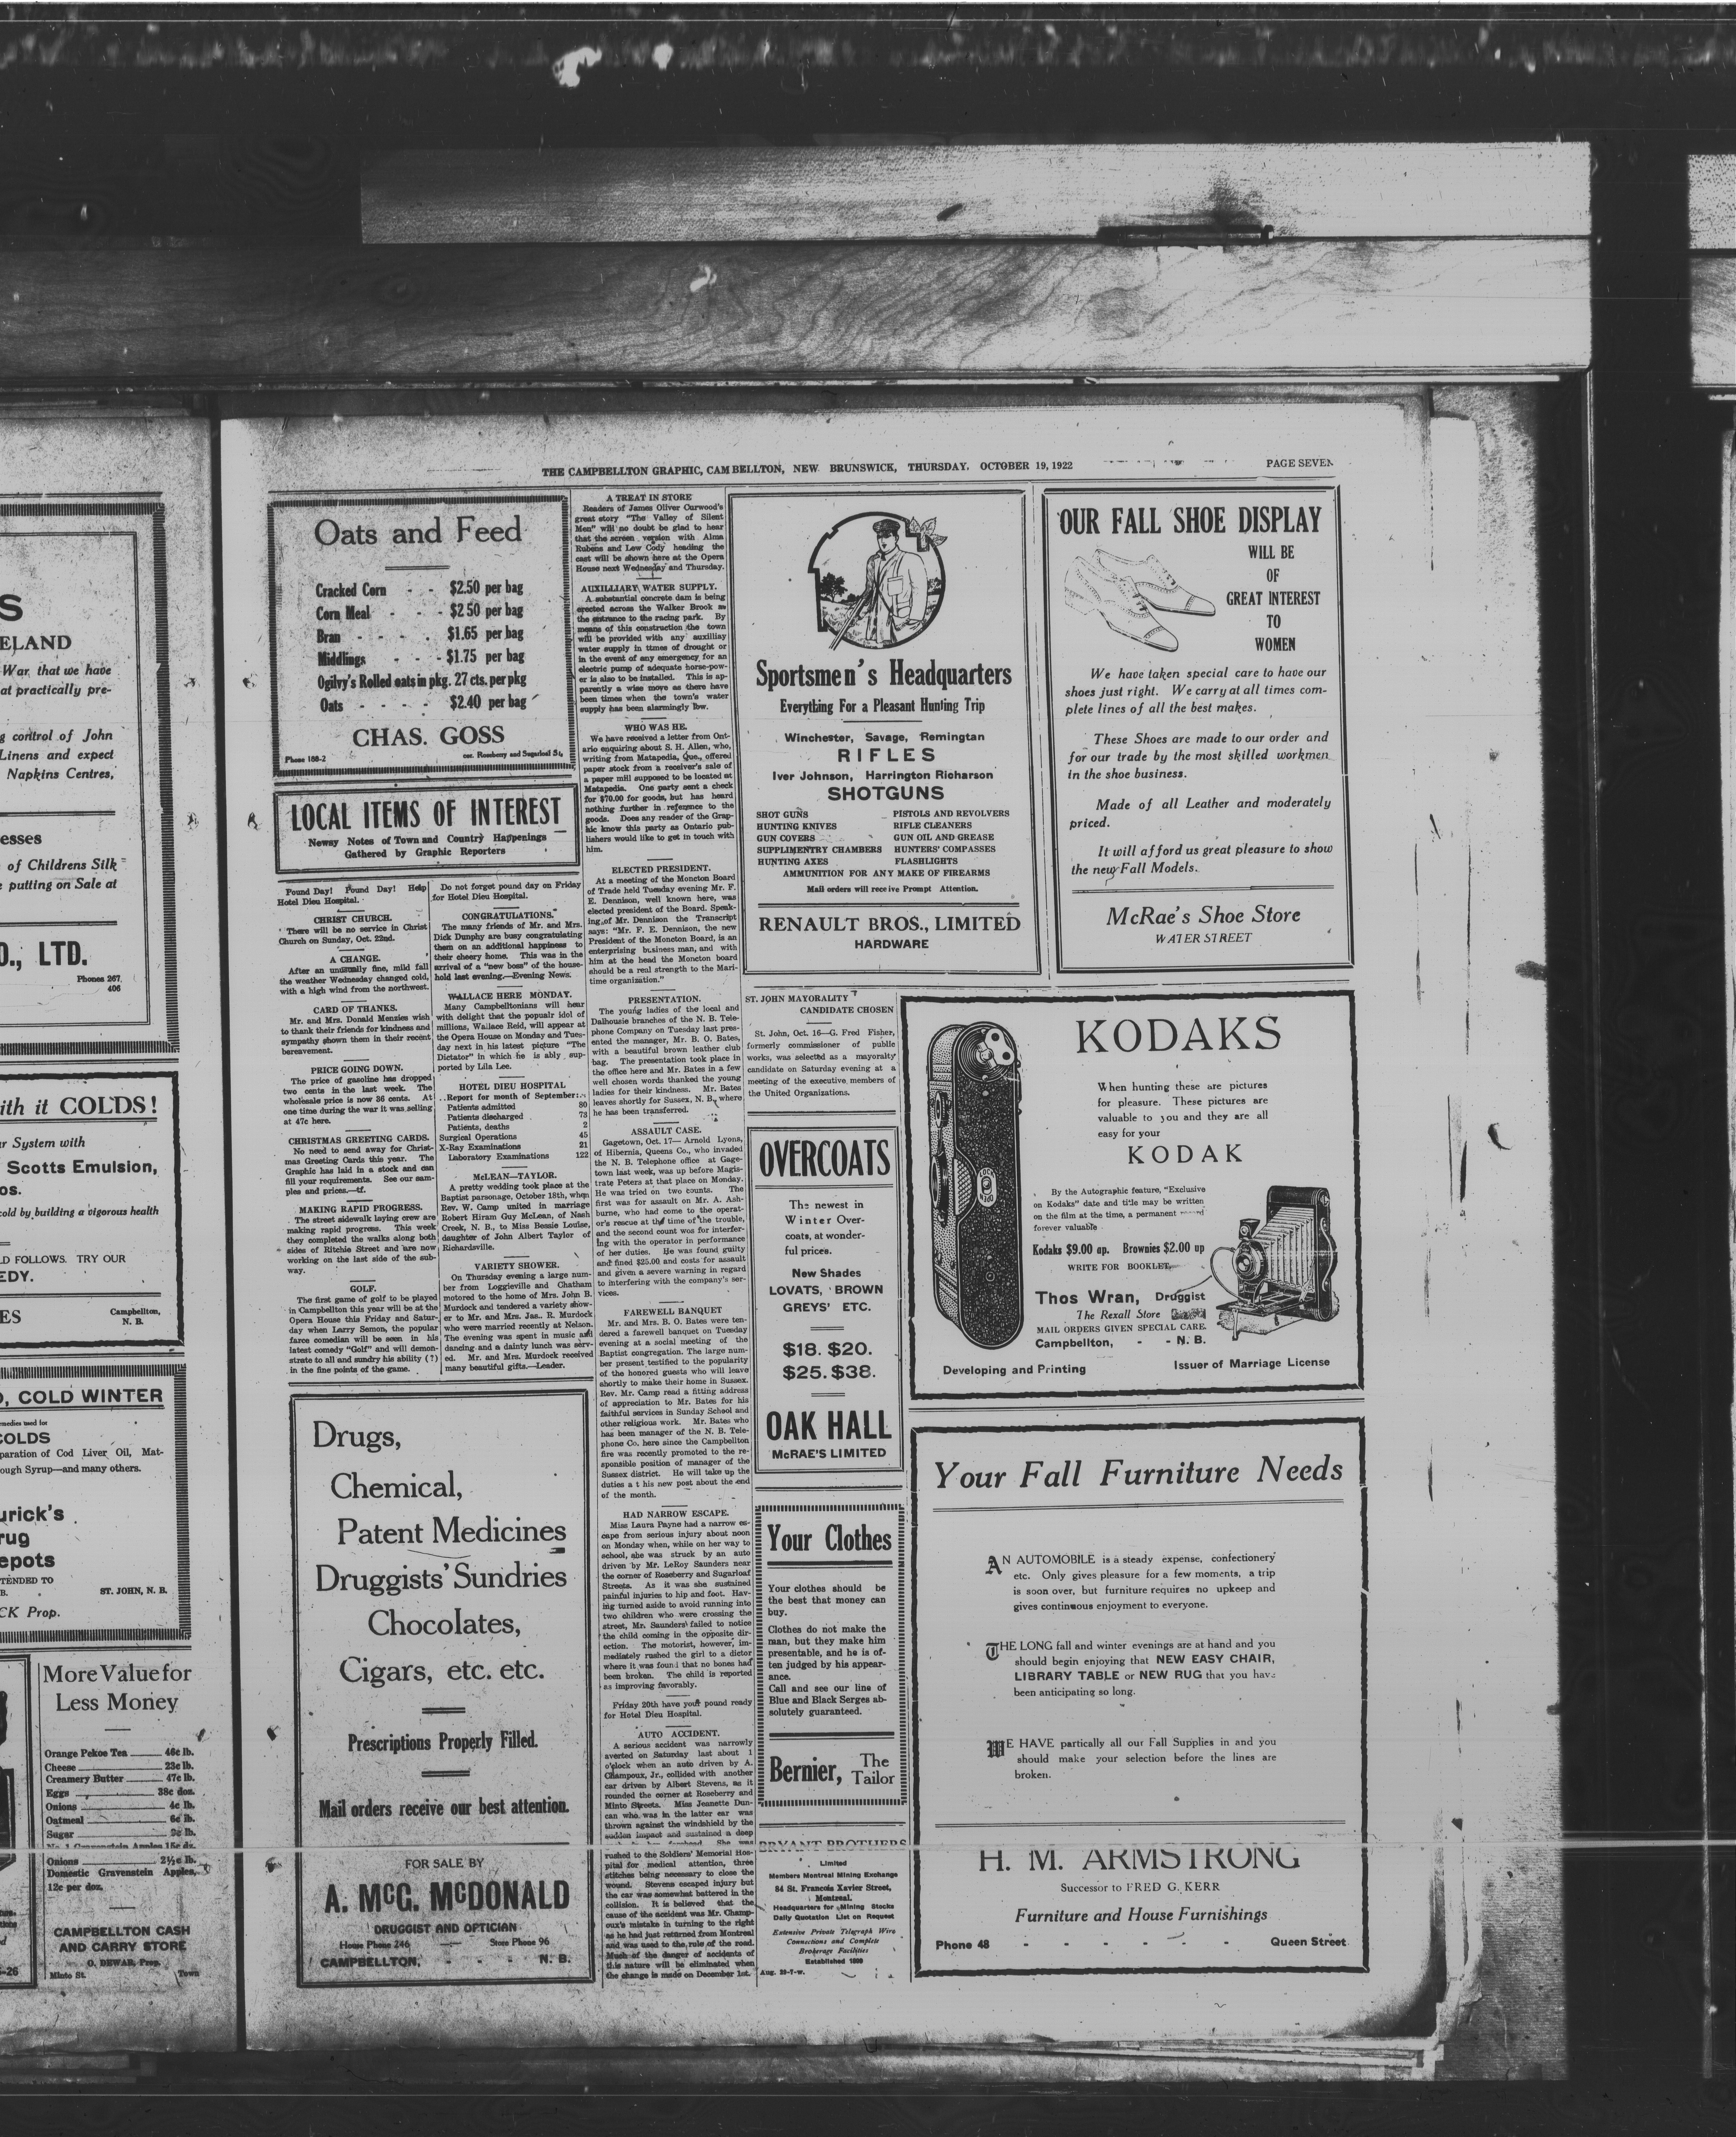 THE CAMPBELLTON GRAPHIC, CAM BELLTON, NEW BRUNSWICK, THURSDAY, OCTOBER 19, 1922
PAGE SEVEN
S
ELAND
War that we have
at practically pre-
g control of John
Linens and expect
Napkins Centres,
esses
of Childrens Silk
putting on Sale at
O., LTD.
Phones 267
406
ith it COLDS!
r System with
Scotts Emulsion,
os.
cold by building a vigorous health
LD FOLLOWS. TRY OUR
EDY.
ES
Campbellton,
N. B.
O, COLD WINTER
medies used for
COLDS
paration of Cod Liver Oil, Mat-
ough Syrup—and many others.
urick's
rug
epots
TENDED TO
B.
ST. JOHN, N. B.
CK Prop.
More Value for
Less Money
Orange Pekoe Tea 46c lb.
Cheese 23c lb.
Creamery Butter 47c lb.
Eggs 38c doz.
Onions 4c lb.
Oatmeal 6c lb.
Sugar 9c lb.
No. 1 Gravenstein Apples 15c dz.
Onions 2½c lb.
Domestic Gravenstein Apples,
12c per doz.
CAMPBELLTON CASH
AND CARRY STORE
O. DEWAR, Prop.
Minto St. Town
Oats and Feed
Cracked Corn - - $2.50 per bag
Corn Meal - - - $2 50 per bag
Bran - - - - $1.65 per bag
Middlings - - - $1.75 per bag
Ogilvy's Rolled oats in pkg. 27 cts. per pkg
Oats - - - - $2.40 per bag
CHAS. GOSS
Phone 188-2
cor. Roseberry and Sugarloaf St,
LOCAL ITEMS OF INTEREST
Newsy Notes of Town and Country Happenings
Gathered by Graphic Reporters
Pound Day! Pound Day! Help
Hotel Dieu Hospital.
CHRIST CHURCH.
There will be no service in Christ
Church on Sunday, Oct. 22nd.
A CHANGE.
After an unusually fine, mild fall
the weather Wednesday changed cold,
with a high wind from the northwest.
CARD OF THANKS.
Mr. and Mrs. Donald Menzies wish
to thank their friends for kindness and
sympathy shown them in their recent
bereavement.
PRICE GOING DOWN.
The price of gasoline has dropped
two cents in the last week. The
wholesale price is now 36 cents. At
one time during the war it was selling
at 47c here.
CHRISTMAS GREETING CARDS.
No need to send away for Christ-
mas Greeting Cards this year. The
Graphic has laid in a stock and can
fill your requirements. See our sam-
ples and prices.—tf.
MAKING RAPID PROGRESS.
The street sidewalk laying crew are
making rapid progress. This week
they completed the walks along both
sides of Ritchie Street and are now
working on the last side of the sub-
way.
GOLF.
The first game of golf to be played
in Campbellton this year will be at the
Opera House this Friday and Satur-
day when Larry Semon, the popular
farce comedian will be seen in his
latest comedy "Golf" and will demon-
strate to all and sundry his ability (?)
in the fine points of the game.
Do not forget pound day on Friday
for Hotel Dieu Hospital.
CONGRATULATIONS.
The many friends of Mr. and Mrs.
Dick Dunphy are busy congratulating
them on an additional happiness to
their cheery home. This was in the
arrival of a "new boss" of the house-
hold last evening.—Evening News.
WALLACE HERE MONDAY.
Many Campbelltonians will hear
with delight that the popualr idol of
millions, Wallace Reid, will appear at
the Opera House on Monday and Tues-
day next in his latest picture "The
Dictator" in which he is ably sup-
ported by Lila Lee.
HOTEL DIEU HOSPITAL
..Report for month of September:..
Patients admitted 80
Patients discharged 73
Patients, deaths 2
Surgical Operations 45
X-Ray Examinations 21
Laboratory Examinations 122
McLEAN—TAYLOR.
A pretty wedding took place at the
Baptist parsonage, October 18th, when
Rev. W. Camp united in marriage
Robert Hiram Guy McLean, of Nash
Creek, N. B., to Miss Bessie Louise,
daughter of John Albert Taylor of
Richardsville.
VARIETY SHOWER.
On Thursday evening a large num-
ber from Loggieville and Chatham
motored to the home of Mrs. John B.
Murdock and tendered a variety show-
er to Mr. and Mrs. Jas.. R. Murdock
who were married recently at Nelson.
The evening was spent in music and
dancing and a dainty lunch was serv-
ed. Mr. and Mrs. Murdock received
many beautiful gifts.—Leader.
Drugs,
Chemical,
Patent Medicines
Druggists' Sundries
Chocolates,
Cigars, etc. etc.
Prescriptions Properly Filled.
Mail orders receive our best attention.
FOR SALE BY
A. McG. McDONALD
DRUGGIST AND OPTICIAN
House Phone 246 Store Phone 96
CAMPBELLTON, - - - N. B.
A TREAT IN STORE
Readers of James Oliver Curwood's
great story "The Valley of Silent
Men" will no doubt be glad to hear
that the screen version with Alma
Rubens and Lew Cody heading the
cast will be shown here at the Opera
House next Wednesday and Thursday.
AUXILLIARY WATER SUPPLY.
A substantial concrete dam is being
erected across the Walker Brook as
the entrance to the racing park. By
means of this construction the town
will be provided with any auxilliay
water supply in times of drought or
in the event of any emergency for an
electric pump of adequate horse-pow-
er is also to be installed. This is ap-
parently a wise move as there have
been times when the town's water
supply has been alarmingly low.
WHO WAS HE.
We have received a letter from Ont-
ario enquiring about S. H. Allen, who,
writing from Matapedia, Que., offered
paper stock from a receiver's sale of
a paper mill supposed to be located at
Matapedia. One party sent a check
for $70.00 for goods, but has heard
nothing further in reference to the
goods. Does any reader of the Grap-
hic know this party as Ontario pub-
lishers would like to get in touch with
him.
ELECTED PRESIDENT.
At a meeting of the Moncton Board
of Trade held Tuesday evening Mr. F.
E. Dennison, well known here, was
elected president of the Board. Speak-
ing of Mr. Dennison the Transcript
says: "Mr. F. E. Dennison, the new
President of the Moncton Board, is an
enterprising business man, and with
him at the head the Moncton board
should be a real strength to the Mari-
time organization."
PRESENTATION.
The young ladies of the local and
Dalhousie branches of the N. B. Tele-
phone Company on Tuesday last pres-
ented the manager, Mr. B. O. Bates,
with a beautiful brown leather club
bag. The presentation took place in
the office here and Mr. Bates in a few
well chosen words thanked the young
ladies for their kindness. Mr. Bates
leaves shortly for Sussex, N. B., where
he has been transferred.
ASSAULT CASE.
Gagetown, Oct. 17— Arnold Lyons,
of Hibernia, Queens Co., who invaded
the N. B. Telephone office at Gage-
town last week, was up before Magis-
trate Peters at that place on Monday.
He was tried on two counts. The
first was for assault on Mr. A. Ash-
burne, who had come to the operat-
or's rescue at the time of the trouble,
and the second count wos for interfer-
ing with the operator in performance
of her duties. He was found guilty
and fined $25.00 and costs for assault
and given a severe warning in regard
to interfering with the company's ser-
vices.
FAREWELL BANQUET
Mr. and Mrs. B. O. Bates were ten-
dered a farewell banquet on Tuesday
evening at a social meeting of the
Baptist congregation. The large num-
ber present testified to the popularity
of the honored guests who will leave
shortly to make their home in Sussex.
Rev. Mr. Camp read a fitting address
of appreciation to Mr. Bates for his
faithful services in Sunday School and
other religious work. Mr. Bates who
has been manager of the N. B. Tele-
phone Co. here since the Campbellton
fire was recently promoted to the re-
sponsible position of manager of the
Sussex district. He will take up the
duties a t his new post about the end
of the month.
HAD NARROW ESCAPE.
Miss Laura Payne had a narrow es-
cape from serious injury about noon
on Monday when, while on her way to
school, she was struck by an auto
driven by Mr. LeRoy Saunders near
the corner of Roseberry and Sugarloaf
Streets. As it was she sustained
painful injuries to hip and foot. Hav-
ing turned aside to avoid running into
two children who were crossing the
street, Mr. Saunders failed to notice
the child coming in the opposite dir-
ection. The motorist, however, im-
mediately rushed the girl to a dictor
where it was found that no bones had
been broken. The child is reported
as improving favorably.
Friday 20th have your pound ready
for Hotel Dieu Hospital.
AUTO ACCIDENT.
A serious accident was narrowly
averted on Saturday last about 1
o'clock when an auto driven by A.
Champoux, Jr., collided with another
car driven by Albert Stevens, as it
rounded the corner at Roseberry and
Minto Streets. Miss Jeanette Dun-
can who was in the latter car was
thrown against the windshield by the
sudden impact and sustained a deep
She was
rushed to the Soldiers' Memorial Hos-
pital for medical attention, three
stitches being necessary to close the
wound. Stevens escaped injury but
the car was somewhat battered in the
collision. It is believed that the
cause of the accident was Mr. Champ-
oux's mistake in turning to the right
as he had just returned from Montreal
and was used to the rule of the road.
Much of the danger of accidents of
this nature will be eliminated when
the change is made on December 1st.
Sportsmen's Headquarters
Everything For a Pleasant Hunting Trip
Winchester, Savage, Remingtan
RIFLES
Iver Johnson, Harrington Richarson
SHOTGUNS
SHOT GUNS PISTOLS AND REVOLVERS
HUNTING KNIVES RIFLE CLEANERS
GUN COVERS GUN OIL AND GREASE
SUPPLIMENTRY CHAMBERS HUNTERS' COMPASSES
HUNTING AXES FLASHLIGHTS
AMMUNITION FOR ANY MAKE OF FIREARMS
Mail orders will receive Prompt Attention.
RENAULT BROS., LIMITED
HARDWARE
OUR FALL SHOE DISPLAY
WILL BE
OF
GREAT INTEREST
TO
WOMEN
We have taken special care to have our
shoes just right. We carry at all times com-
plete lines of all the best makes.
These Shoes are made to our order and
for our trade by the most skilled workmen
in the shoe business.
Made of all Leather and moderately
priced.
It will afford us great pleasure to show
the new Fall Models.
McRae's Shoe Store
WATER STREET
ST. JOHN MAYORALITY
CANDIDATE CHOSEN
St. John, Oct. 16—G. Fred Fisher,
formerly commissioner of public
works, was selected as a mayoralty
candidate on Saturday evening at a
meeting of the executive members of
the United Organizations.
OVERCOATS
The newest in
Winter Over-
coats, at wonder-
ful prices.
New Shades
LOVATS, BROWN
GREYS' ETC.
$18. $20.
$25. $38.
OAK HALL
McRAE'S LIMITED
Your Clothes
Your clothes should be
the best that money can
buy.
Clothes do not make the
man, but they make him
presentable, and he is of-
ten judged by his appear-
ance.
Call and see our line of
Blue and Black Serges ab-
solutely guaranteed.
Bernier, The
Tailor
BRYANT BROTHERS
Limited
Members Montreal Mining Exchange
84 St. Francois Xavier Street,
Montreal.
Headquarters for Mining Stocks
Daily Quotation List on Request
Extensive Private Telegraph Wire
Connections and Complete
Brokerage Facilities
Established 1909
Aug. 29-7-w.
KODAKS
When hunting these are pictures
for pleasure. These pictures are
valuable to you and they are all
easy for your
KODAK
By the Autographic feature, "Exclusive
on Kodaks" date and title may be written
on the film at the time, a permanent record
forever valuable
Kodaks $9.00 ap. Brownies $2.00 up
WRITE FOR BOOKLET.
Thos Wran, Druggist
The Rexall Store
MAIL ORDERS GIVEN SPECIAL CARE.
Campbellton, - - N. B.
Developing and Printing Issuer of Marriage License
Your Fall Furniture Needs
AN AUTOMOBILE is a steady expense, confectionery
etc. Only gives pleasure for a few moments, a trip
is soon over, but furniture requires no upkeep and
gives continuous enjoyment to everyone.
THE LONG fall and winter evenings are at hand and you
should begin enjoying that NEW EASY CHAIR,
LIBRARY TABLE or NEW RUG that you have
been anticipating so long.
WE HAVE partically all our Fall Supplies in and you
should make your selection before the lines are
broken.
H. M. ARMSTRONG
Successor to FRED G. KERR
Furniture and House Furnishings
Phone 48 - - - - - - Queen Street